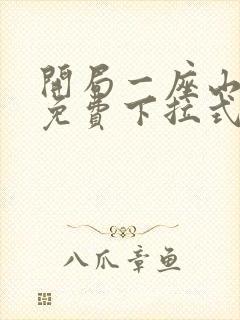 開局一座山
免費下拉式
八爪章鱼